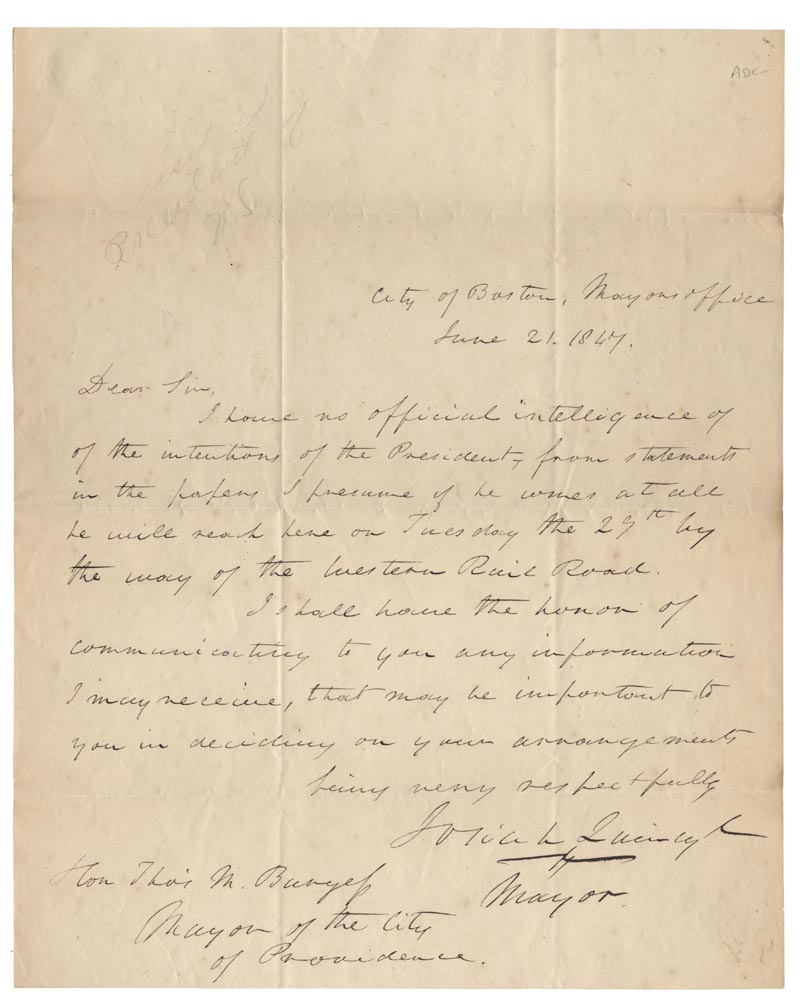 ADC-
Visit of
President of
U.S.
City of Boston, Mayors office
June 21. 1847.
Dear Sir,
I have no official intelligence of
of the intentions of the President, from statements
in the papers I presume if he comes at all
he will reach here on Tuesday the 29th by
the way of the Western Rail Road.
I shall have the honor of
communicating to you any information
I may receive, that may be important to
you in deciding on your arrangements
being very respectfully
Josiah Quincy Jr
Mayor.
Hon Tho's M. Burgess
Mayor of the City
of Providence.